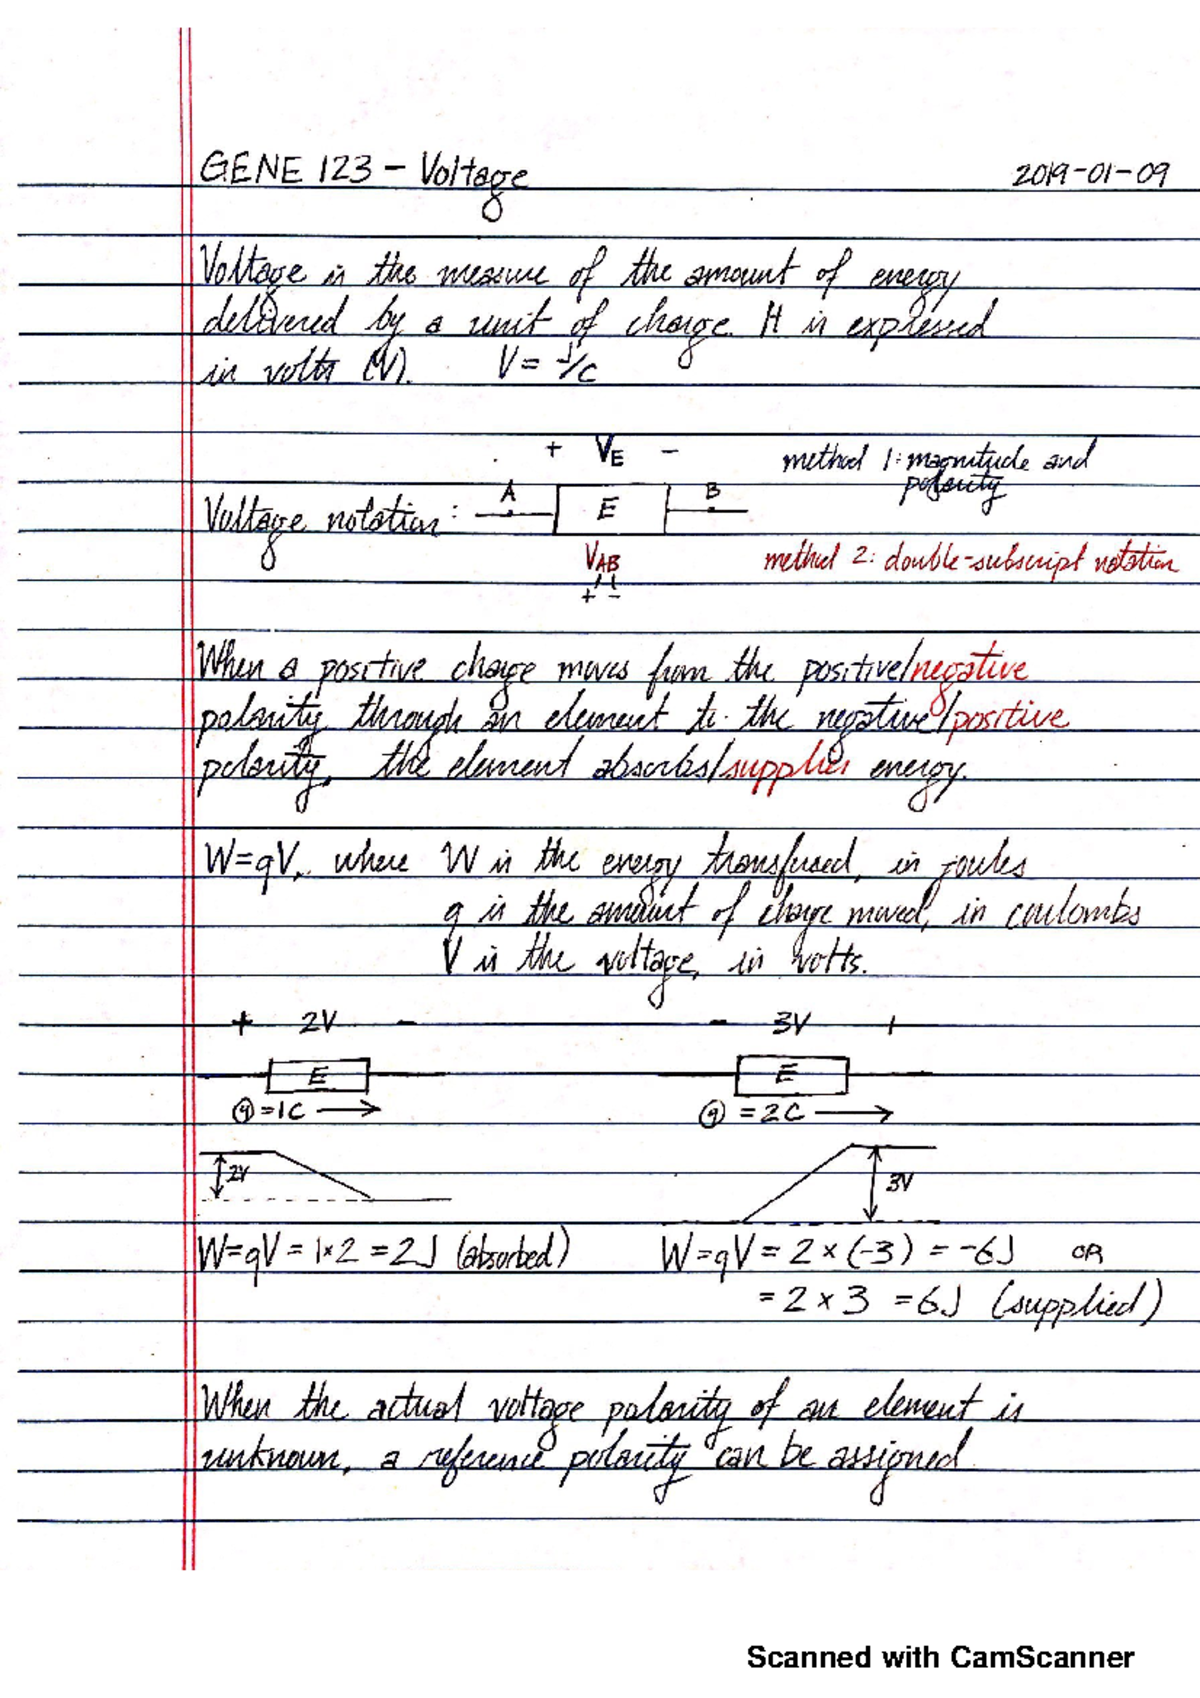 GENE 123 - Voltage 2019-01-09
Voltage is the measure of the amount of energy
delivered by a unit of charge. It is expressed
in volts (V). V = J/C
+ VE - method 1: magnitude and
polarity
Voltage notation: A E B
VAB method 2: double-subscript notation
+ -
When a positive charge moves from the positive/negative
polarity through an element to the negative/positive
polarity, the element absorbs/supplies energy.
W=qV, where W is the energy transfused, in joules
q is the amount of charge moved, in coulombs
V is the voltage, in volts.
+ 2V - - 3V +
E E
q =1C → q = 2C →
2V 3V
W=qV = 1×2 = 2J (absorbed) W=qV = 2 × (-3) = -6J OR
= 2 × 3 = 6J (supplied)
When the actual voltage polarity of an element is
unknown, a reference polarity can be assigned
Scanned with CamScanner